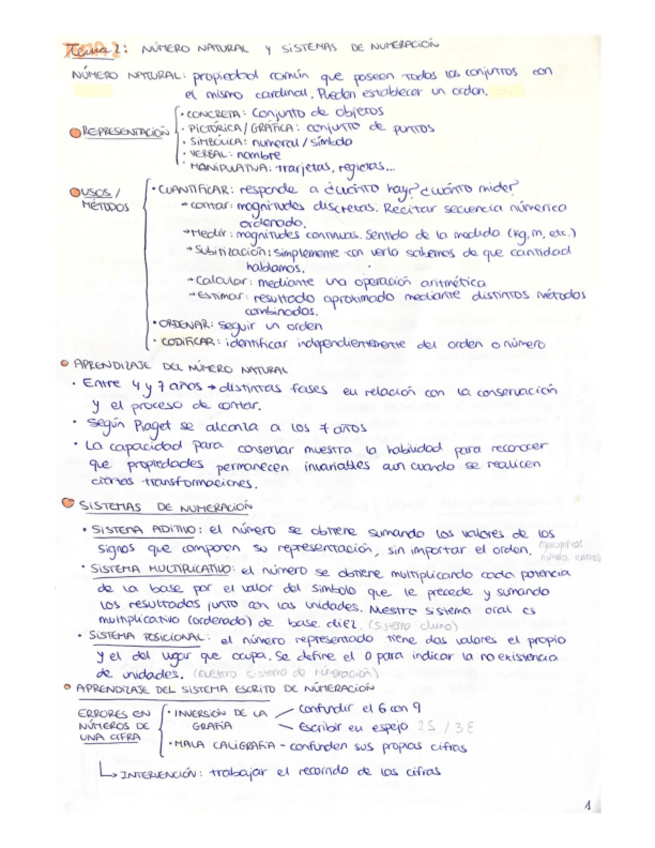 Tema 2: NÚMERO NATURAL Y SISTEMAS DE NUMERACIÓN
NÚMERO NATURAL: propiedad común que poseen todos los conjuntos con
el mismo cardinal. Pueden establecer un orden.
REPRESENTACIÓN
· CONCRETA: conjunto de objetos
· PICTÓRICA/GRÁFICA: conjunto de puntos
· SIMBÓLICA: numeral/símbolo
· VERBAL: nombre
· MANIPULATIVA: tarjetas, regletas...
USOS/
MÉTODOS
· CUANTIFICAR: responde a ¿cuánto hay? ¿cuánto mide?
→ contar: magnitudes discretas. Recitar secuencia númerica
ordenado.
→ Medir: magnitudes continuas. Sentido de la medida (kg, m, etc.)
→ Subitización: simplemente con verlo sabemos de que cantidad
hablamos.
→ Calcular: mediante una operación aritmética
→ Estimar: resultado aproximado mediante distintos métodos
combinados.
· ORDENAR: seguir un orden
· CODIFICAR: identificar independientemente del orden o número
APRENDIZAJE DEL NÚMERO NATURAL
· Entre 4 y 7 años → distintas fases en relación con la conservación
y el proceso de contar.
· Según Piaget se alcanza a los 7 años
· La capacidad para conservar muestra la habilidad para reconocer
que propiedades permanecen invariables aun cuando se realicen
ciertas transformaciones.
SISTEMAS DE NUMERACIÓN
· SISTEMA ADITIVO: el número se obtiene sumando los valores de los
signos que componen su representación, sin importar el orden.
· SISTEMA MULTIPLICATIVO: el número se obtiene multiplicando cada potencia
de la base por el valor del símbolo que le precede y sumando
los resultados junto con las unidades. Nuestro sistema oral es
multiplicativo (ordenado) de base diez. (sistema chino)
· SISTEMA POSICIONAL: el número representado tiene dos valores el propio
y el del lugar que ocupa. Se define el 0 para indicar la no existencia
de unidades. (nuestro sistema de numeración)
APRENDIZAJE DEL SISTEMA ESCRITO DE NÚMERACIÓN
ERRORES EN
NÚMEROS DE
UNA CIFRA
· INVERSIÓN DE LA
GRAFÍA
confundir el 6 con 9
Escribir en espejo
· MALA CALIGRAFÍA - confunden sus propias cifras
INTERVENCIÓN: trabajar el recorrido de las cifras
1